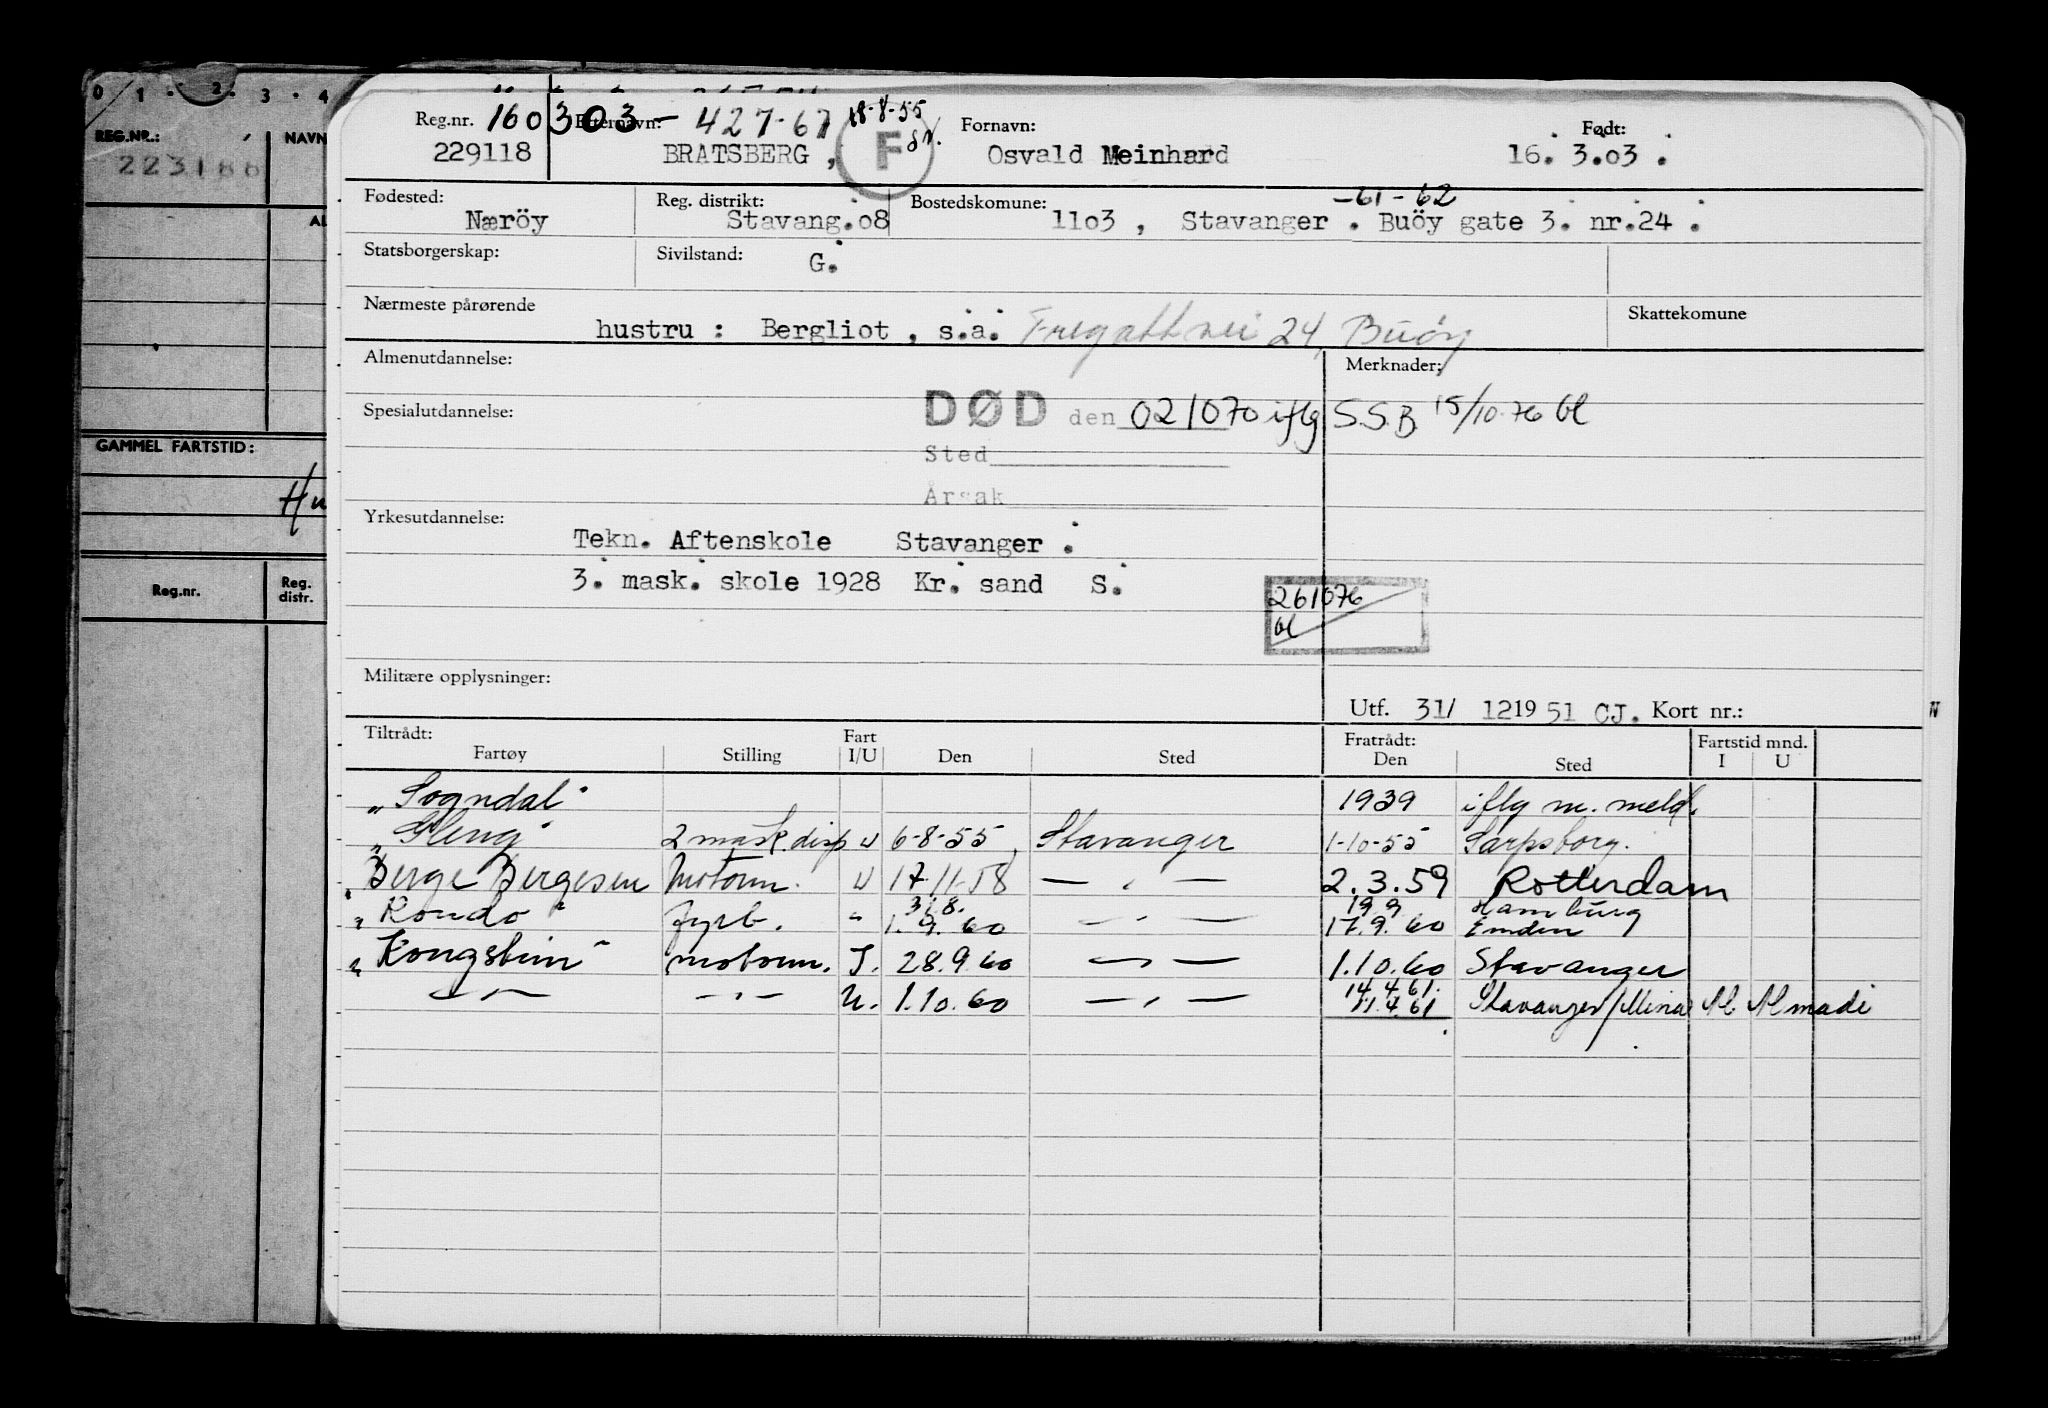 0 1 · 2 · 3 · 4
REG.NR.: NAVN
223186
AL
GAMMEL FARTSTID:
Hu
Reg.nr. Reg. distr.
Reg.nr. 160303-427-67 Etternavn: 18-8-55 Fornavn: Født:
229118 BRATSBERG , F Osvald Meinhard 16. 3.03 .
Fødested: Reg. distrikt: Bostedskomune: -61-62
Nærøy Stavang.08 1103 , Stavanger . Buöy gate 3. nr.24 .
Statsborgerskap: Sivilstand: G.
Nærmeste pårørende Skattekomune
hustru : Bergliot , s.a. Fregattvei 24, Buöy
Almenutdannelse: Merknader:
Spesialutdannelse: DØD den 021070 iflg S.S.B. 15/10-76 bl
Sted
Årsak
Yrkesutdannelse:
Tekn. Aftenskole Stavanger .
3. mask. skole 1928 Kr. sand S.
261076
bl
Militære opplysninger:
Utf. 31/ 1219 51 CJ. Kort nr.: N
Tiltrådt: Fart Fratrådt: Fartstid mnd.
Fartøy Stilling I/U Den Sted Den Sted I U
"Sogndal" 1939 iflg m. meld.
"Gleng" 2 mask.disp u 6-8-55 Stavanger 1-10-55 Sarpsborg.
"Berge Bergesen Motorm. u 17-11-58 — " — 2.3.59 Rotterdam
31.8. 19 9 Hamburg
"Rondo" fyrb. " 1.9.60 — " — 17.9.60 Emden
"Kongstein" motorm. I. 28.9.60 — " — 1.10.60 Stavanger
14.4.61.
— " — — " — U. 1.10.60 — " — 11.4.61 Stavanger/Mina Al Ahmadi